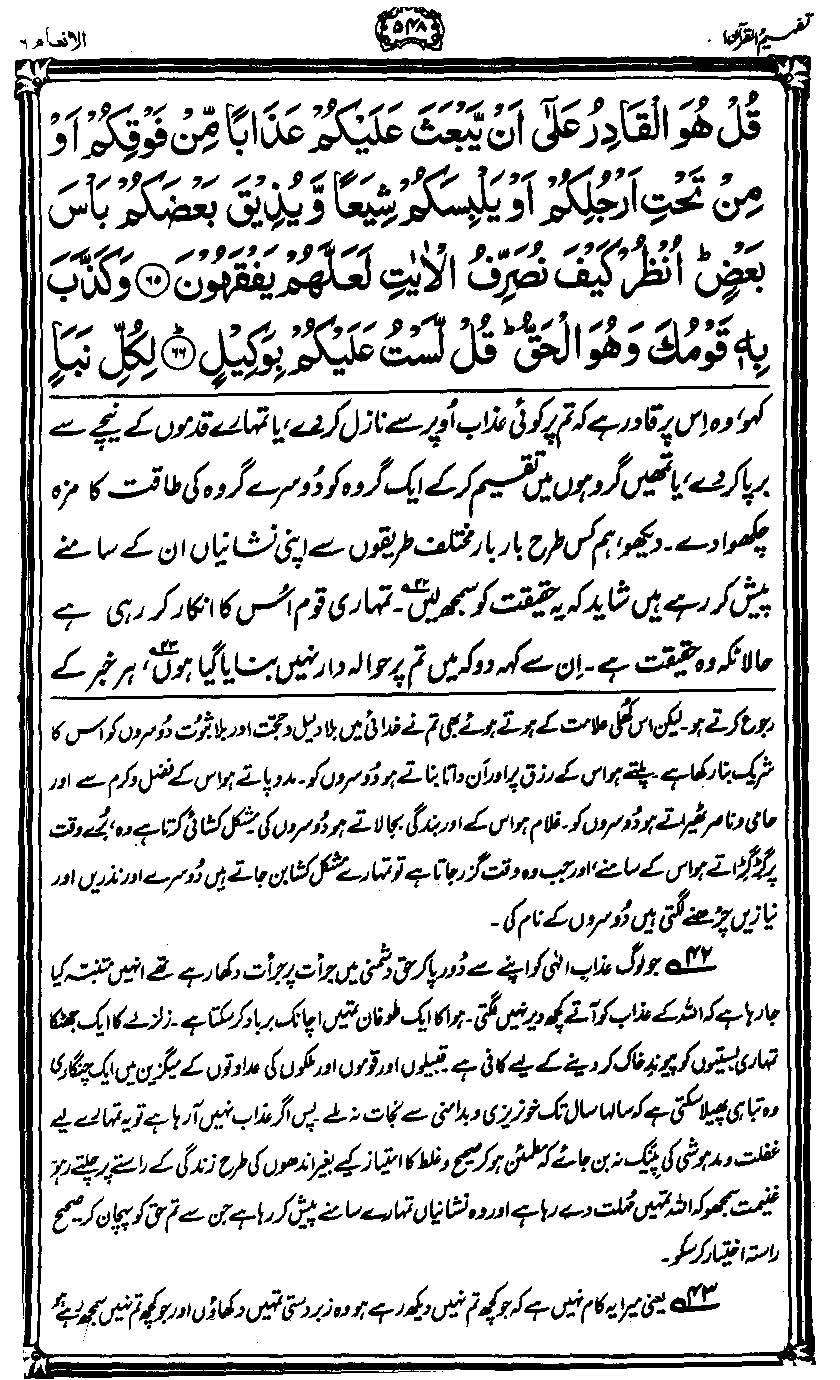 تفہیم القرآن ۱
۵۴۸
الانعام ۶
قُلْ هُوَ الْقَادِرُ عَلٰٓى اَنْ يَّبْعَثَ عَلَيْكُمْ عَذَابًا مِّنْ فَوْقِكُمْ اَوْ
مِنْ تَحْتِ اَرْجُلِكُمْ اَوْ يَلْبِسَكُمْ شِيَعًا وَّيُذِيْقَ بَعْضَكُمْ بَاْسَ
بَعْضٍ ؕ اُنْظُرْ كَيْفَ نُصَرِّفُ الْاٰيٰتِ لَعَلَّهُمْ يَفْقَهُوْنَ ۝۶۵ وَكَذَّبَ
بِهٖ قَوْمُكَ وَهُوَ الْحَقُّ ؕ قُلْ لَّسْتُ عَلَيْكُمْ بِوَكِيْلٍ ۝۶۶ؕ لِكُلِّ نَبَاٍ
کہو، وہ اِس پر قادر ہے کہ تم پر کوئی عذاب اُوپر سے نازل کر دے، یا تمہارے قدموں کے نیچے سے
برپا کر دے، یا تمھیں گروہوں میں تقسیم کر کے ایک گروہ کو دُوسرے گروہ کی طاقت کا مزہ
چکھوا دے۔ دیکھو، ہم کس طرح بار بار مختلف طریقوں سے اپنی نشانیاں ان کے سامنے
پیش کر رہے ہیں شاید کہ یہ حقیقت کو سمجھ لیں۴۲۔ تمہاری قوم اُس کا انکار کر رہی ہے
حالانکہ وہ حقیقت ہے۔ اِن سے کہہ دو کہ میں تم پر حوالہ دار نہیں بنایا گیا ہوں۴۳، ہر خبر کے
رجوع کرتے ہو۔ لیکن اس کُھلی علامت کے ہوتے ہوئے بھی تم نے خدائی میں بلا دلیل و حجت اور بلا ثبوت دُوسروں کو اس کا
شریک بنا رکھا ہے۔ پلتے ہو اس کے رزق پر اور اَن داتا بناتے ہو دُوسروں کو۔ مدد پاتے ہو اس کے فضل و کرم سے اور
حامی و ناصر ٹھیراتے ہو دُوسروں کو۔ غلام ہو اس کے اور بندگی بجا لاتے ہو دُوسروں کی۔ مشکل کشائی کرتا ہے وہ، بُرے وقت
پر گِڑگِڑاتے ہو اس کے سامنے، اور جب وہ وقت گزر جاتا ہے تو تمہارے مشکل کشا بن جاتے ہیں دُوسرے اور نذریں اور
نیازیں چڑھنے لگتی ہیں دُوسروں کے نام کی۔
۴۲ جو لوگ عذابِ الٰہی کو اپنے سے دُور پا کر حق دشمنی میں جرأت پر جرأت دکھا رہے تھے انہیں متنبہ کیا
جا رہا ہے کہ اللہ کے عذاب کو آتے کچھ دیر نہیں لگتی۔ ہوا کا ایک طوفان تمہیں اچانک برباد کر سکتا ہے۔ زلزلے کا ایک جھٹکا
تمہاری بستیوں کو پیوندِ خاک کر دینے کے لیے کافی ہے۔ قبیلوں اور قوموں اور ملکوں کی عداوتوں کے میگزین میں ایک چنگاری
وہ تباہی پھیلا سکتی ہے کہ سالہا سال تک خونریزی و بدامنی سے نجات نہ ملے۔ پس اگر عذاب نہیں آ رہا ہے تو یہ تمہارے لیے
غفلت و مدہوشی کی پینک نہ بن جائے کہ مطمئن ہو کر صحیح و غلط کا امتیاز کیے بغیر اندھوں کی طرح زندگی کے راستے پر چلتے رہو۔
غنیمت سمجھو کہ اللہ تمہیں مُہلت دے رہا ہے اور وہ نشانیاں تمہارے سامنے پیش کر رہا ہے جن سے تم حق کو پہچان کر صحیح
راستہ اختیار کر سکو۔
۴۳ یعنی میرا یہ کام نہیں ہے کہ جو کچھ تم نہیں دیکھ رہے ہو وہ زبردستی تمہیں دکھاؤں اور جو کچھ تم نہیں سمجھ رہے ہو